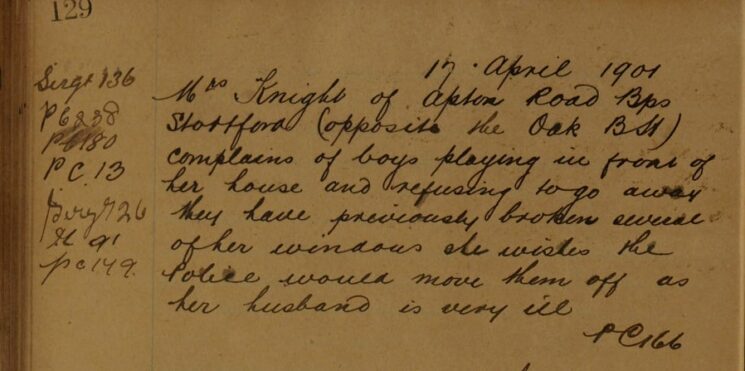 129
17 . April 1901
Mrs Knight of Apton Road Bps
Stortford (opposite the Oak BH)
complains of boys playing in front of
her house and refusing to go away
they have previously broken several
of her windows she wishes the
Police would move them off as
her husband is very ill
PC 166
Sergt 136
PC 238
PC 180
PC. 13
Sergt 26
91
PC 149.